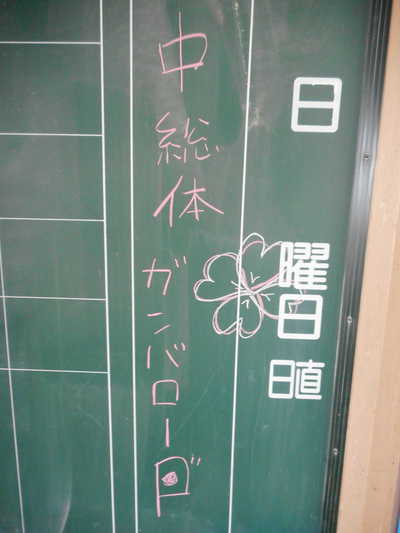 日
曜日
日直
中総体ガンバロー